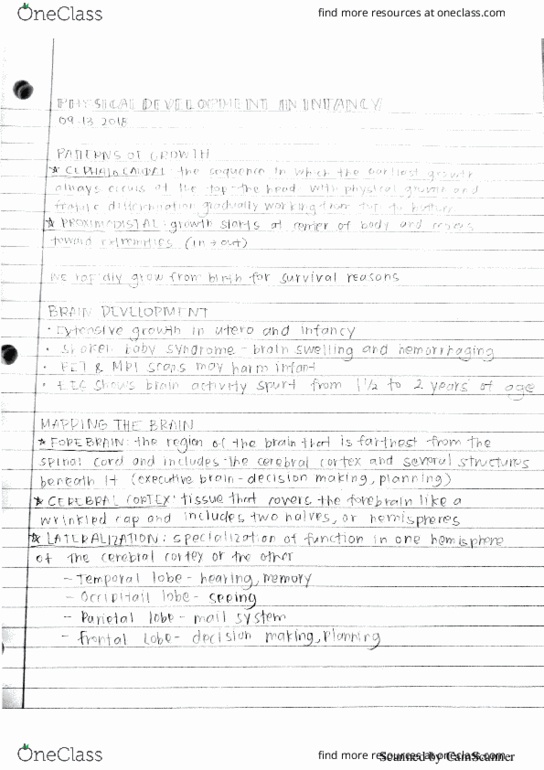 OneClass
find more resources at oneclass.com
PHYSICAL DEVELOPMENT IN INFANCY
09.13.2018
PATTERNS OF GROWTH
★ CEPHALOCAUDAL: the sequence in which the earliest growth
always occurs at the top-the head with physical growth and
gradually working from top to bottom
★ PROXIMODISTAL: growth starts at center of body and
toward extremities (in → out)
we rapidly grow from birth for survival reasons
BRAIN DEVELOPMENT
• Extensive growth in utero and infancy
• Shaken baby syndrome - brain swelling and hemorrhaging
• PET & MRI scans may harm infant
• EEG shows brain activity spurt from 1 1/2 to 2 years of age
MAPPING THE BRAIN
★ FOREBRAIN: the region of the brain that is farthest from the
spinal cord and includes the cerebral cortex and several structures
beneath it (executive brain - decision making, planning)
★ CEREBRAL CORTEX: tissue that covers the forebrain like a
wrinkled cap and includes two halves, or hemispheres
★ LATERALIZATION: specialization of function in one hemisphere
of the cerebral cortex or the other
- Temporal lobe - hearing, memory
- Occipitail lobe - seeing
- Parietal lobe - mail system
- Frontal lobe - decision making, planning
OneClass
find more resources at oneclass.com
Scanned by CamScanner